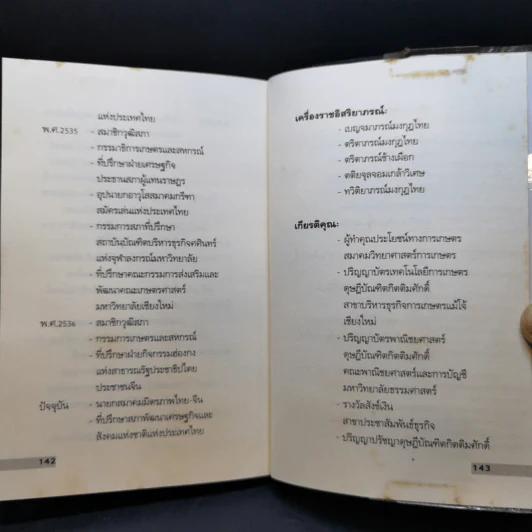 แห่งประเทศไทย
พ.ศ.2535 - สมาชิกวุฒิสภา
- กรรมาธิการเกษตรและสหกรณ์
- ที่ปรึกษาฝ่ายเศรษฐกิจ
ประธานสภาผู้แทนราษฎร
- อุปนายกอาวุโสสมาคมกรีฑา
สมัครเล่นแห่งประเทศไทย
- กรรมการสภาที่ปรึกษา
สถาบันบัณฑิตบริหารธุรกิจศศินทร์
แห่งจุฬาลงกรณ์มหาวิทยาลัย
- ที่ปรึกษาคณะกรรมการส่งเสริมและ
พัฒนาคณะเกษตรศาสตร์
มหาวิทยาลัยเชียงใหม่
พ.ศ.2536 - สมาชิกวุฒิสภา
- กรรมการเกษตรและสหกรณ์
- ที่ปรึกษาฝ่ายกิจกรรมฮ่องกง
แห่งสาธารณรัฐประชาธิปไตย
ประชาชนจีน
ปัจจุบัน - นายกสมาคมมิตรภาพไทย-จีน
- ที่ปรึกษาสภาพัฒนาเศรษฐกิจและ
สังคมแห่งชาติแห่งประเทศไทย
142
เครื่องราชอิสริยาภรณ์:
- เบญจมาภรณ์มงกุฎไทย
- ตริตาภรณ์มงกุฎไทย
- ตริตาภรณ์ช้างเผือก
- ตติยจุลจอมเกล้าวิเศษ
- ทวิติยาภรณ์มงกุฎไทย
เกียรติคุณ:
- ผู้ทำคุณประโยชน์ทางการเกษตร
สมาคมวิทยาศาสตร์การเกษตร
- ปริญญาบัตรเทคโนโลยีการเกษตร
ดุษฎีบัณฑิตกิตติมศักดิ์
สาขาบริหารธุรกิจการเกษตรแม่โจ้
เชียงใหม่
- ปริญญาบัตรพาณิชยศาสตร์
ดุษฎีบัณฑิตกิตติมศักดิ์
คณะพาณิชยศาสตร์และการบัญชี
มหาวิทยาลัยธรรมศาสตร์
- รางวัลสังข์เงิน
สาขาประชาสัมพันธ์ธุรกิจ
- ปริญญาปรัชญาดุษฎีบัณฑิตกิตติมศักดิ์
143